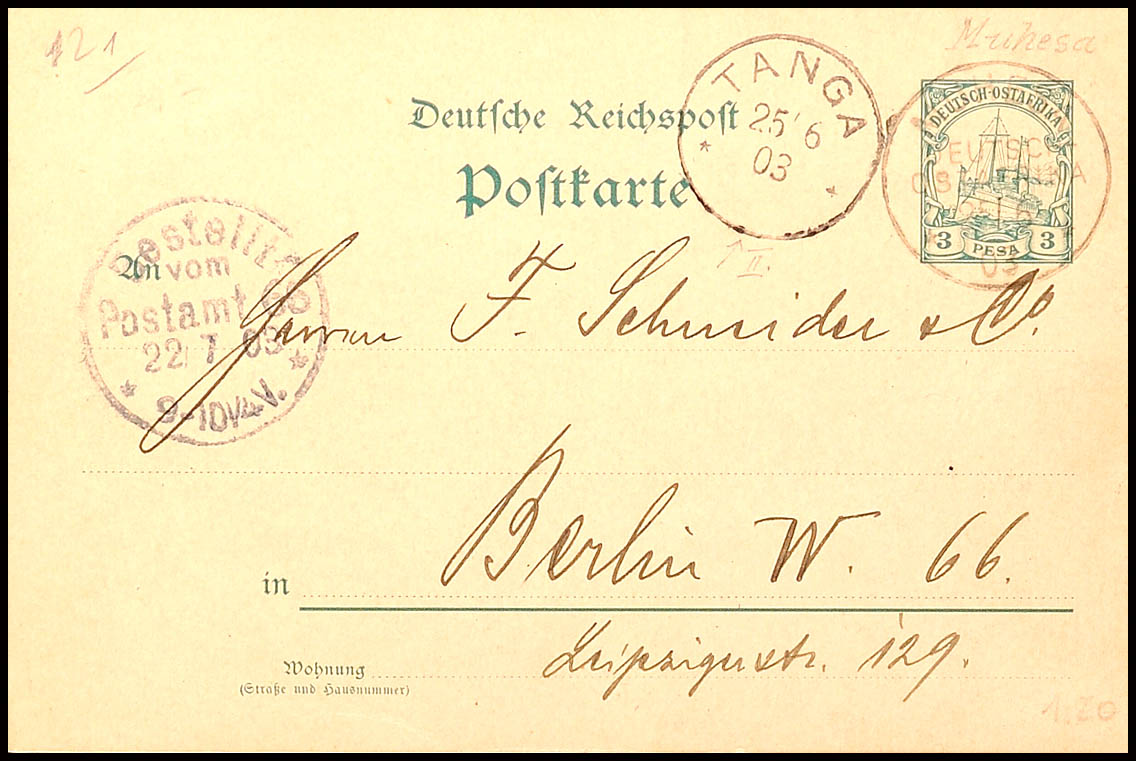 121
Muhesa
Deutsche Reichspost
Postkarte
TANGA
25/6
03
DEUTSCH-OSTAFRIKA
3 PESA 3
DEUTSCH
OSTAFRIKA
03
II.
Bestellt
vom
Postamt 66
22/7 03
9-10¼V.
An Herren F. Schneider & Co.
in Berlin W. 66.
Wohnung
(Straße und Hausnummer)
Leipzigerstr. 129.
1.20